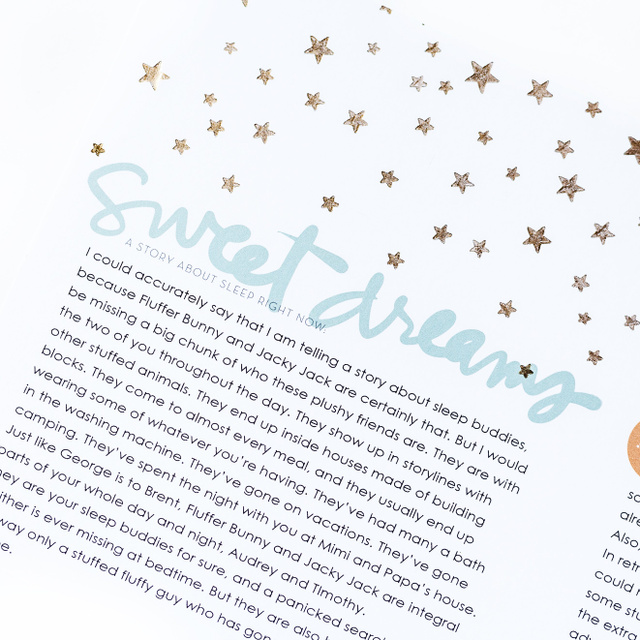 sweet dreams
A STORY ABOUT SLEEP RIGHT NOW.
I could accurately say that I am telling a story about sleep buddies,
because Fluffer Bunny and Jacky Jack are certainly that. But I would
be missing a big chunk of who these plushy friends are. They are with
the two of you throughout the day. They show up in storylines with
other stuffed animals. They end up inside houses made of building
blocks. They come to almost every meal, and they usually end up
wearing some of whatever you're having. They've had many a bath
in the washing machine. They've gone on vacations. They've gone
camping. They've spent the night with you at Mimi and Papa's house.
Just like George is to Brent, Fluffer Bunny and Jacky Jack are integral
parts of your whole day and night, Audrey and Timothy.
They are your sleep buddies for sure, and a panicked
either is ever missing at bedtime. But they are also
way only a stuffed fluffy guy who has gon
so
alre
Also,
In retr
could
some stu
the extra
adv